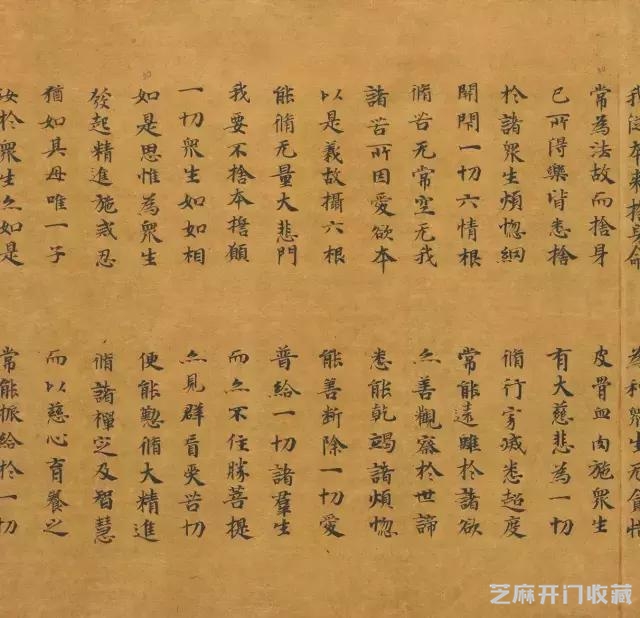 為利眾生无貪惜
常為法故而捨身 皮骨血肉施眾生
已所得樂皆悉捨 有大慈悲為一切
於諸眾生煩惱網 脩行寂滅悉超度
開閇一切六情根 常能遠離於諸欲
脩苦无常空无我 亦善觀察於世諦
諸苦所因愛欲本 悉能乾竭諸煩惱
以是義故攝六根 能善断除一切愛
能脩无量大悲門 普給一切諸羣生
我要不捨本擔願 而亦不住勝菩提
一切眾生如如相 亦見群盲受苦切
如是思惟為眾生 便能懃脩大精進
發起精進施戒忍 脩諸禪定及智慧
猶如其母唯一子 而以慈心育養之
汝於眾生亦如是 常能振給於一切
芝麻开门收藏